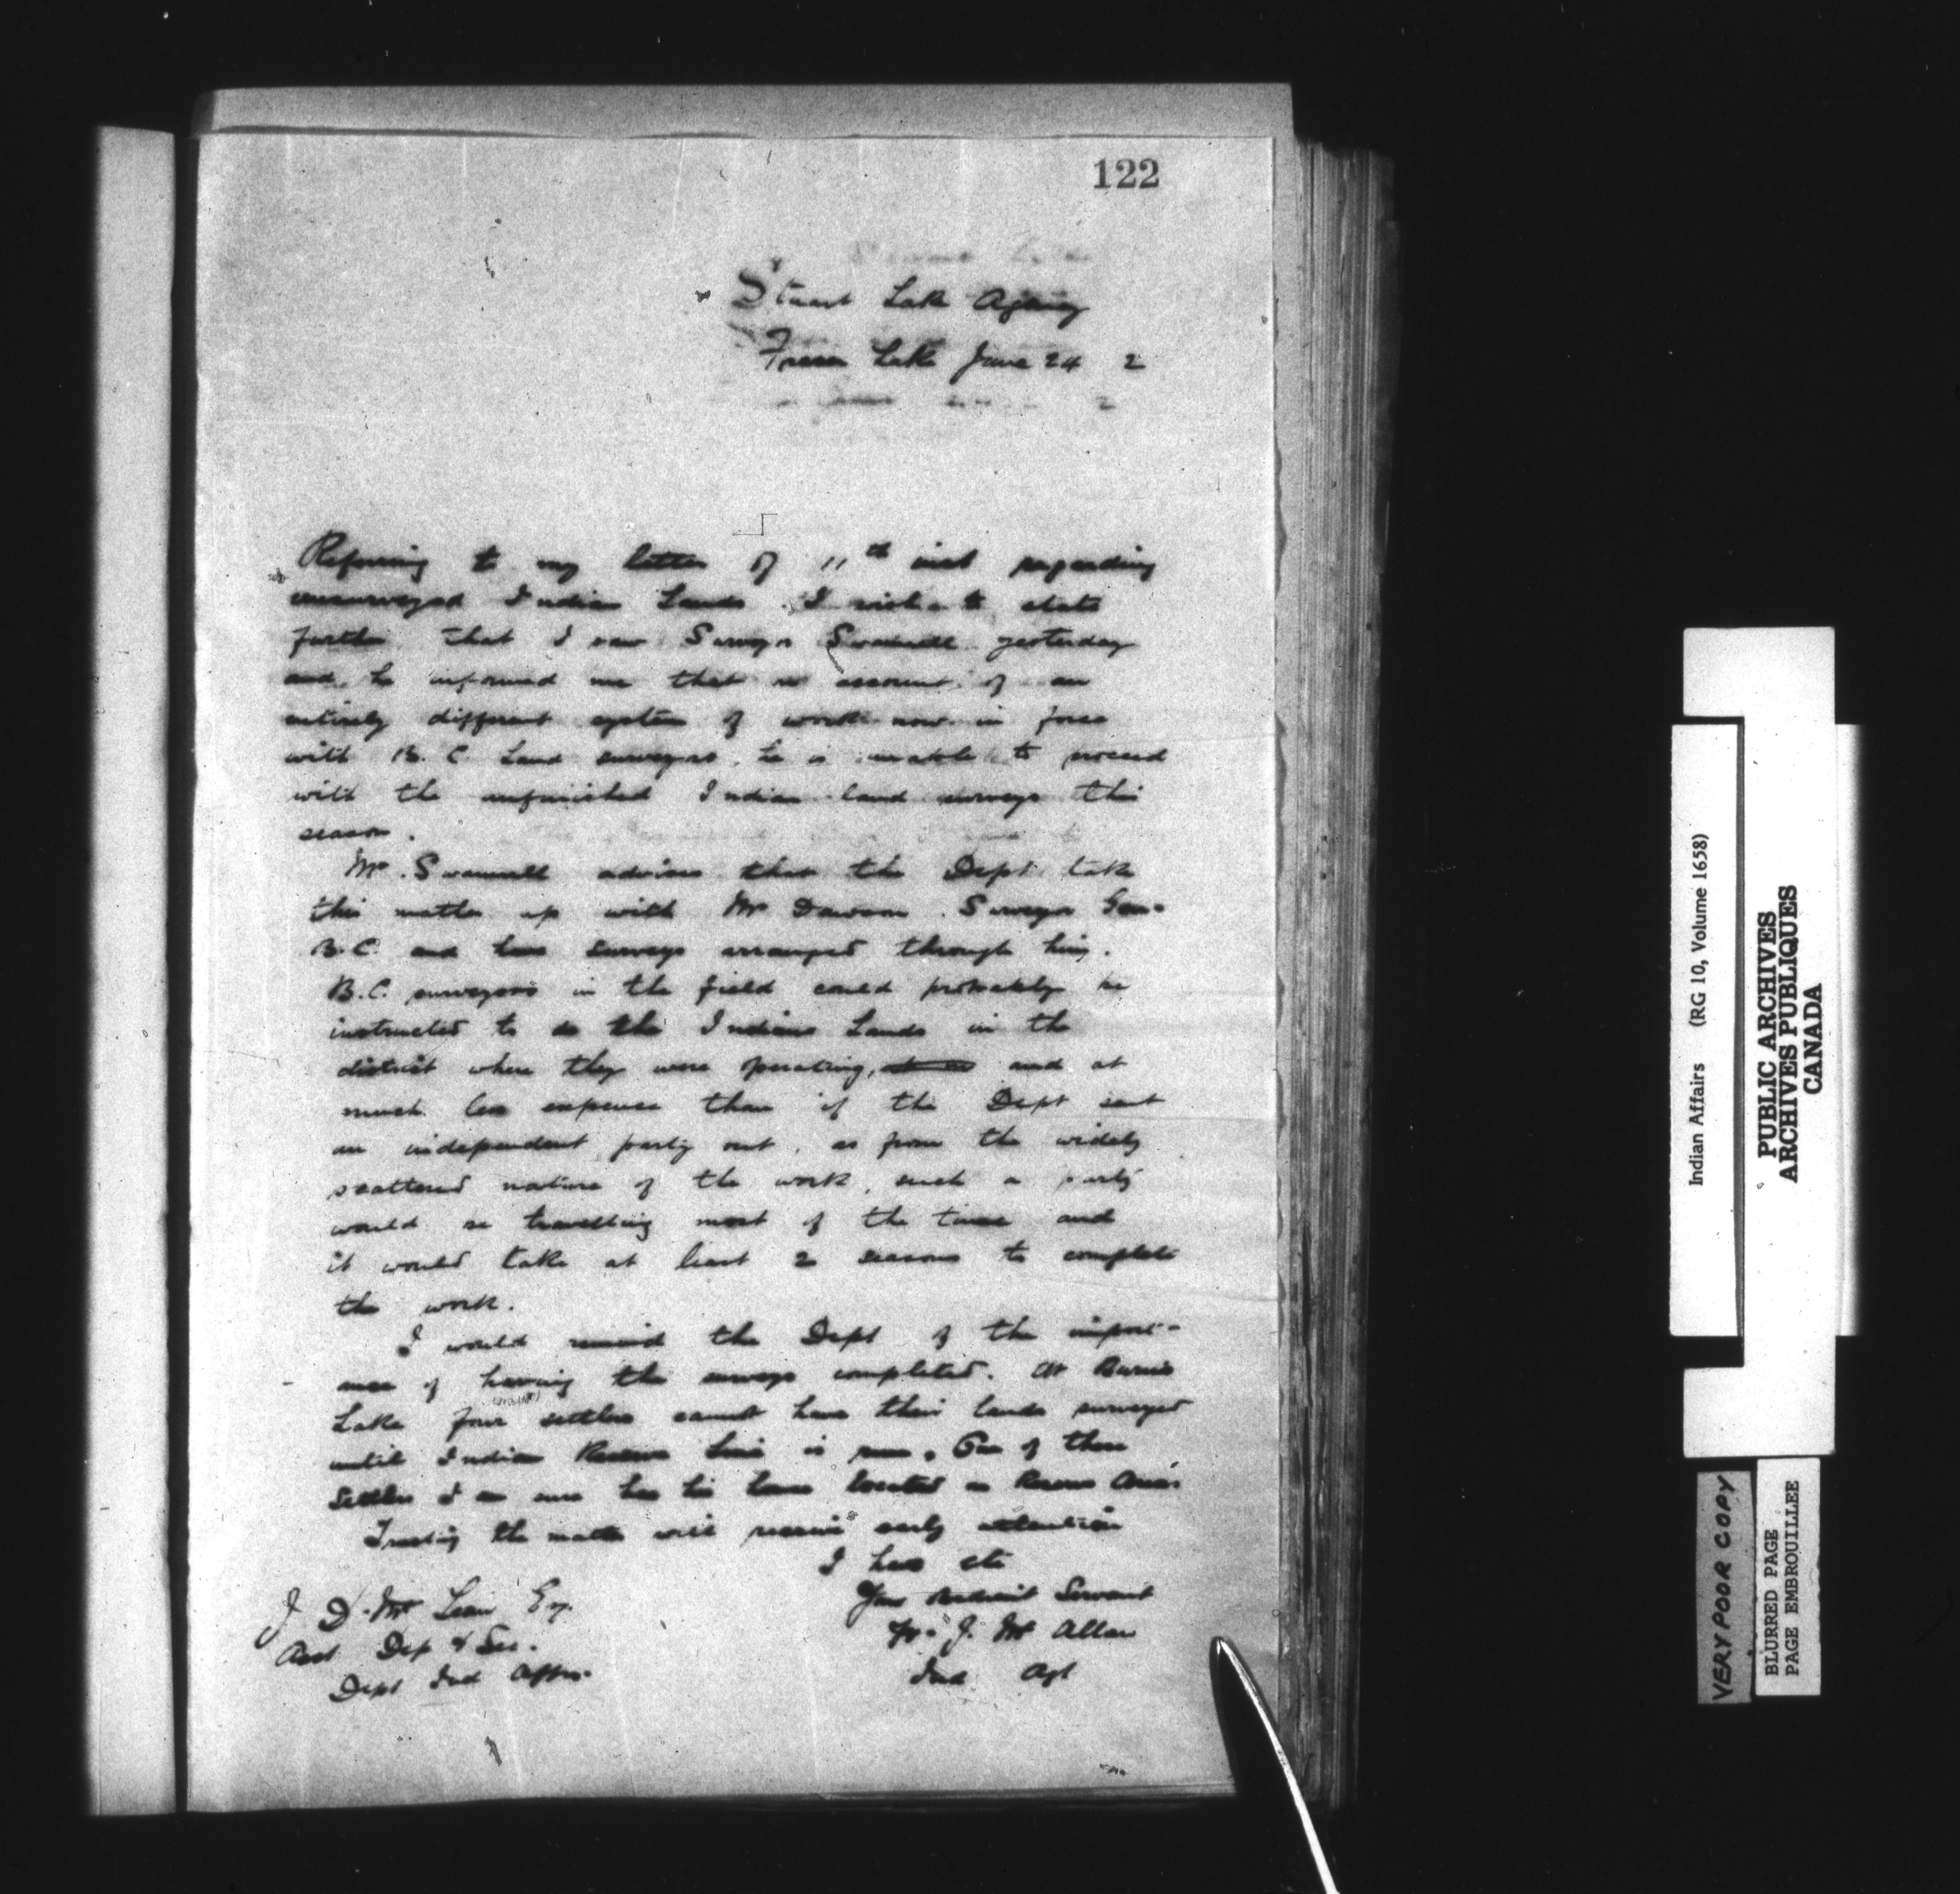 122
Stuart Lake Agency
Fraser Lake June 24 2
Referring to my letter of 11th inst regarding
unsurveyed Indian Lands I wish to state
further that I saw Surveyor Swannell yesterday
and he informed me that on account of an
entirely different system of work now in force
with B.C. Land surveyors he is unable to proceed
with the unfinished Indian land surveys this
season.
Mr. Swannell advises that the Dept take
this matter up with Mr Dawson Surveyor Gen.
B.C. and have surveys arranged through him.
B.C. surveyors in the field could probably be
instructed to do the Indians Lands in the
district where they were operating, and at
much less expense than if the Dept sent
an independent party out, as from the widely
scattered nature of the work, such a party
would be travelling most of the time and
it would take at least 2 seasons to complete
the work.
I would remind the Dept of the import-
ance of having the surveys completed. At Burns
Lake four settlers cannot have their lands surveyed
until Indian Reserve line is run. One of these
settlers I am sure has his house located on Reserve
Trusting the matter will receive early attention
I have etc
Your obedient Servant
W. J. McAllan
Ind Agt
J. D. McLean Esq.
Asst Dep & Sec.
Dept Ind Affrs.
Indian Affairs (RG 10, Volume 1658)
PUBLIC ARCHIVES
ARCHIVES PUBLIQUES
CANADA
VERY POOR COPY
BLURRED PAGE
PAGE EMBROUILLEE